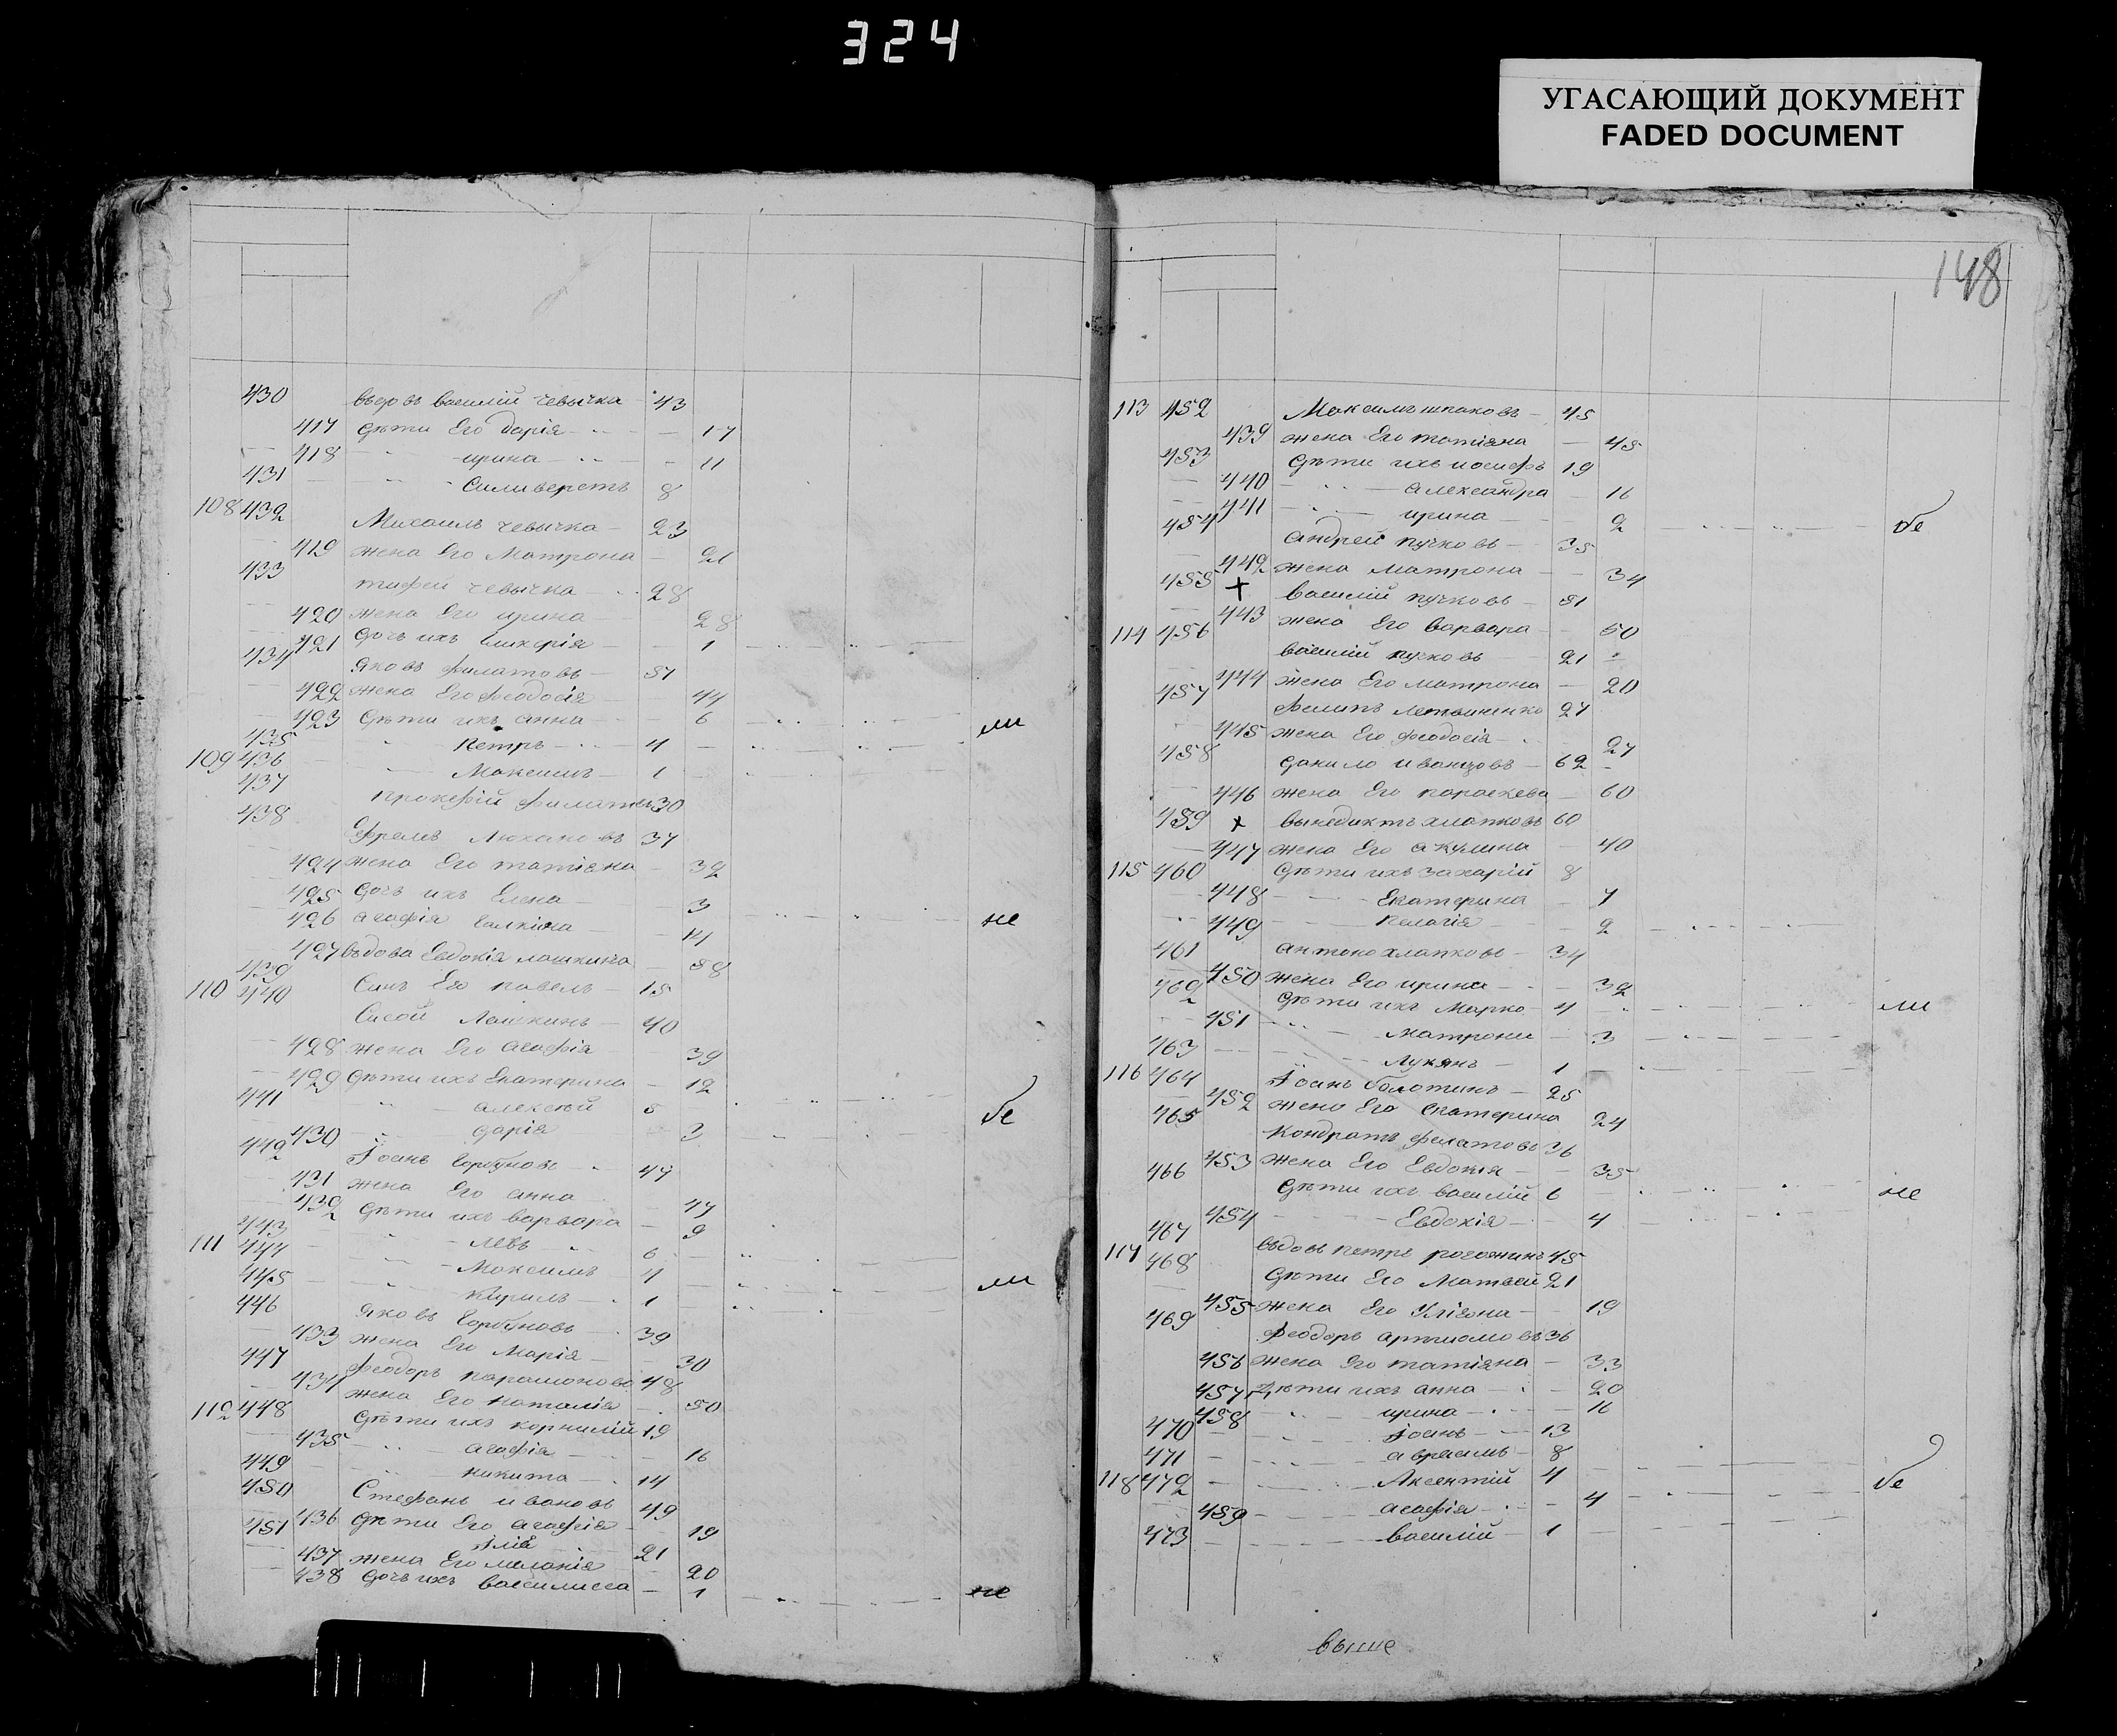 324
УГАСАЮЩИЙ ДОКУМЕНТ
FADED DOCUMENT
430 вдовъ василій чевычка 43
417 дѣти Его дарія 17
418 ирина 11
431 Силиверстъ 8
108 432 Мисаилъ чевычка 23
419 жена Его Матрона 21
433 тифей чевычка 28
420 жена Его ирина 28
421 дочь ихъ гликерія 1
434 яковъ филатовъ 51
422 жена Его феодосія 44
423 дѣти ихъ анна 6 ли
435 Петръ 4
109 436 Максимъ 1
437 прокофій филатовъ 30
438 Ефремъ 37
424 жена Его татіяна 32
425 дочь ихъ Елена 3
426 агафія галкина 14 не
427 вдова Евдокія лашкина 58
439 Сынъ Его павелъ 15
110 440 Сысой Лашкинъ 40
428 жена Его агафія 39
429 дѣти ихъ Екатерина 12
441 алексѣй 5 бе
430 дарія 3
442 Іоанъ Горбуновъ 47
431 жена Его анна 47
432 дѣти ихъ варвара 9
443 левъ 6
111 444 Максимъ 4 ли
445 Кѵрилъ 1
446 яковъ Горбуновъ 39
433 жена Его Марія 30
447 феодоръ парамоновъ 48
434 жена Его наталія 50
112 448 дѣти ихъ корнилій 19
435 агафія 16
449 никита 14
450 Стефанъ ивановъ 49
436 дѣти Его агафія 19
451 Ілія 21
437 жена Его меланія 20
438 дочь ихъ василисса 1 не
148
113 452 Максимъ шпаковъ 45
439 жена Его татіяна 45
453 дѣти ихъ иосифъ 19
440 александра 16
441 ирина 2 бе
454 андрей пучковъ 35
442 жена матрона 34
455 + василій пучковъ 51
443 жена Его варвара 50
114 456 василій пучковъ 21
444 жена Его матрона 20
457 филипъ летвиненко 27
445 жена Его феодосія 27
458 данило иванцовъ 62
446 жена Его параскева 60
459 + венедиктъ хлапковъ 60
447 жена Его акулина 40
115 460 дѣти ихъ захарій 8
448 Екатерина 7
449 пелагія 2
461 антоно хлапковъ 34
450 жена Его ирина 32
462 дѣти ихъ Марко 4 ли
451 матрона 3
463 Лукянъ 1
116 464 Іоанъ болотинъ 25
452 жена Его екатерина 24
465 Кондратъ филатовъ 36
453 жена Его Евдокия 35
466 дѣти ихъ василій 6 не
454 Евдокія 4
467 вдовъ петръ рогожинъ 45
117 468 дѣти Его Матвей 21
455 жена Его Уліяна 19
469 феодоръ артиомовъ 36
456 жена Его татіяна 33
457 Дѣти ихъ анна 20
458 ирина 16
470 Іоанъ 13
471 авраамъ 8
118 472 Аксентій 4 бе
459 агафія 4
473 василій 1
выше